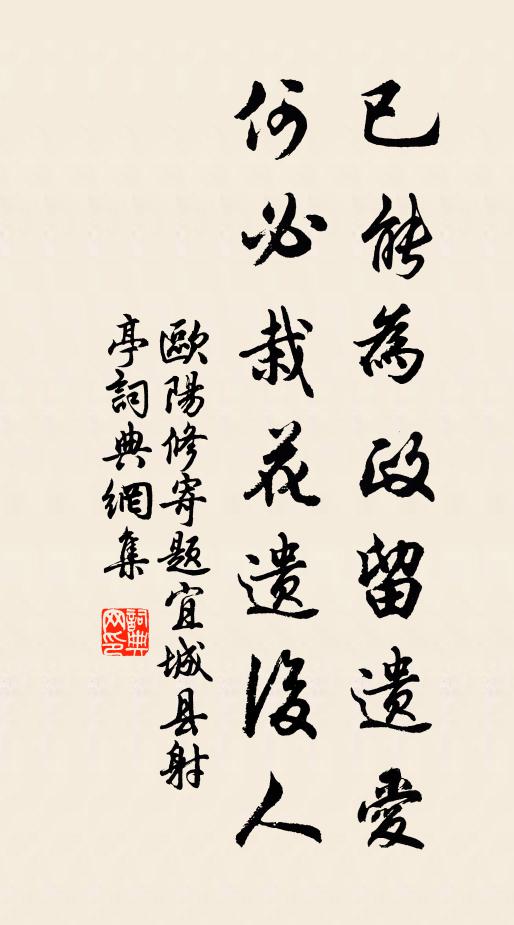 已能為政留遺愛
何必栽花遺後人
歐陽修寄題宜城县射
亭詞典網集
詞典
网印